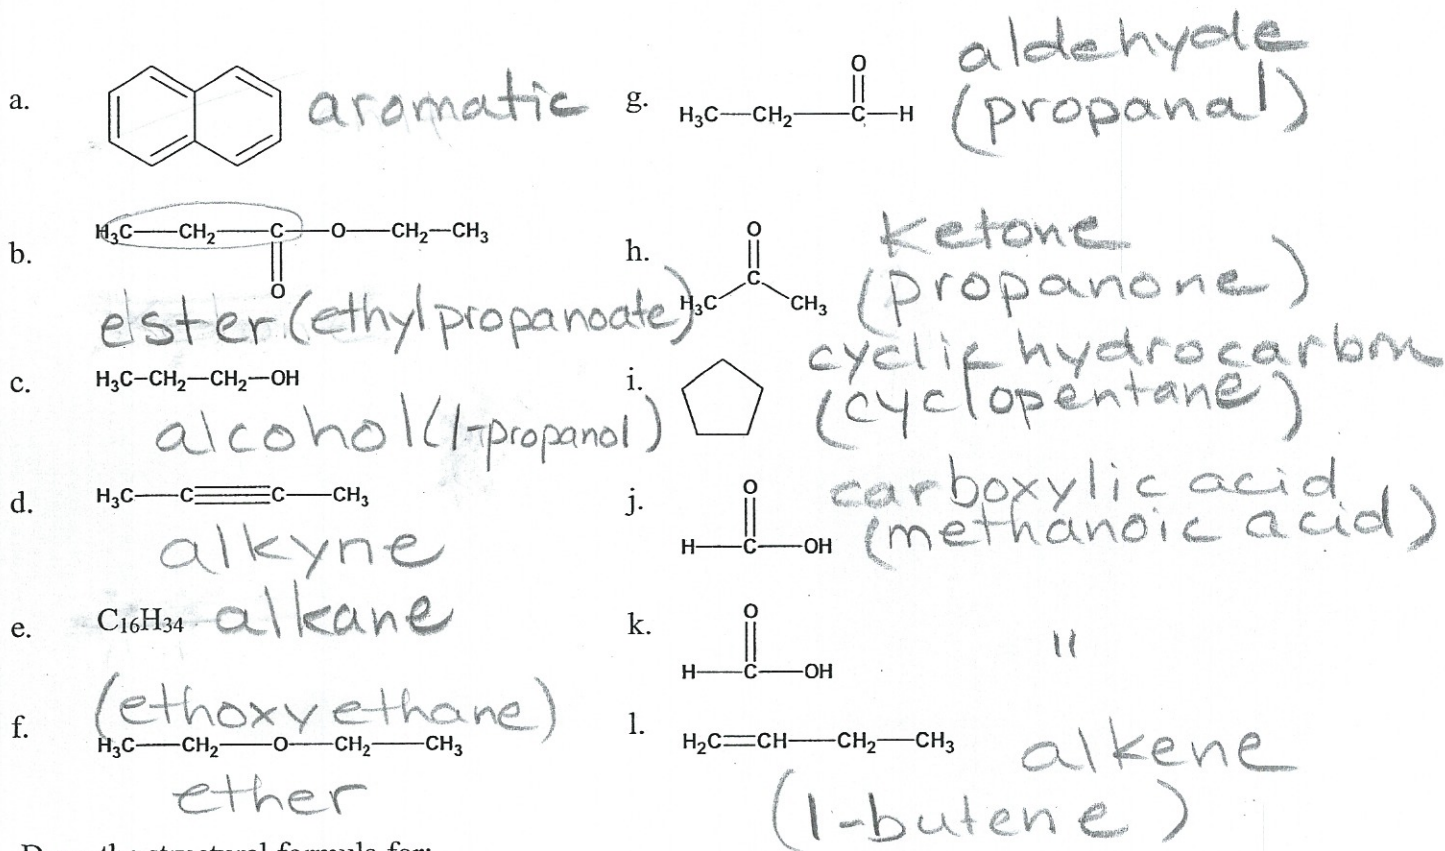 a.
aromatic
b.
H₃C—CH₂—C—O—CH₂—CH₃
O
ester (ethyl propanoate)
c.
H₃C—CH₂—CH₂—OH
alcohol (1-propanol)
d.
H₃C—C≡C—CH₃
alkyne
e.
C₁₆H₃₄ alkane
(ethoxy ethane)
f.
H₃C—CH₂—O—CH₂—CH₃
ether
g.
O
H₃C—CH₂—C—H
aldehyde
(propanal)
h.
O
C
H₃C CH₃
ketone
(propanone)
i.
cyclic hydrocarbon
(cyclopentane)
j.
O
H—C—OH
carboxylic acid
(methanoic acid)
k.
O
H—C—OH
"
l.
H₂C=CH—CH₂—CH₃
alkene
(1-butene)
the structural formula for: